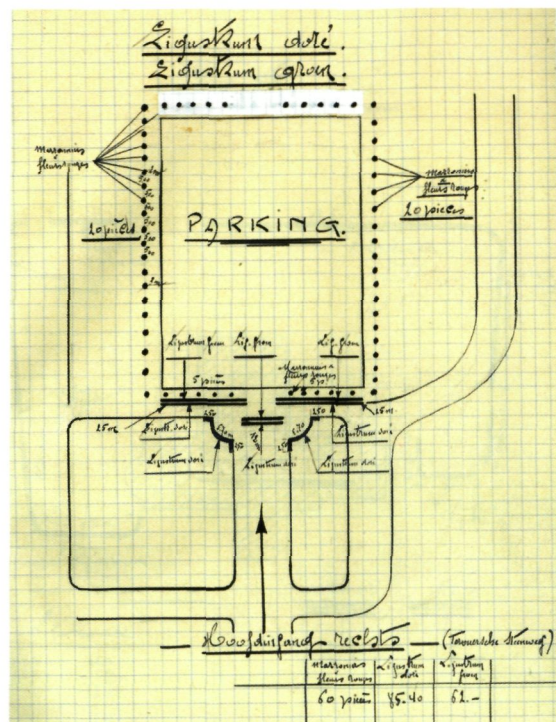 Ligustrum doré.
Ligustrum groen.
marronniers
fleurs rouges
20 pièces
marronniers
à
fleurs rouges
20 pièces
PARKING.
Ligustrum groen
Lig. groen
Lig. groen
5 pièces
Marronniers à
fleurs rouges
25 m
25 m.
Ligust. doré
250
250
Ligustrum doré
Ligustrum doré
Ligustrum doré
Ligustrum doré
Hoofdingang rechts — (Tervurensche Steenweg)
marronniers
fleurs rouges
Ligustrum
doré
Ligustrum
groen
60 pièces
85.40
62.-